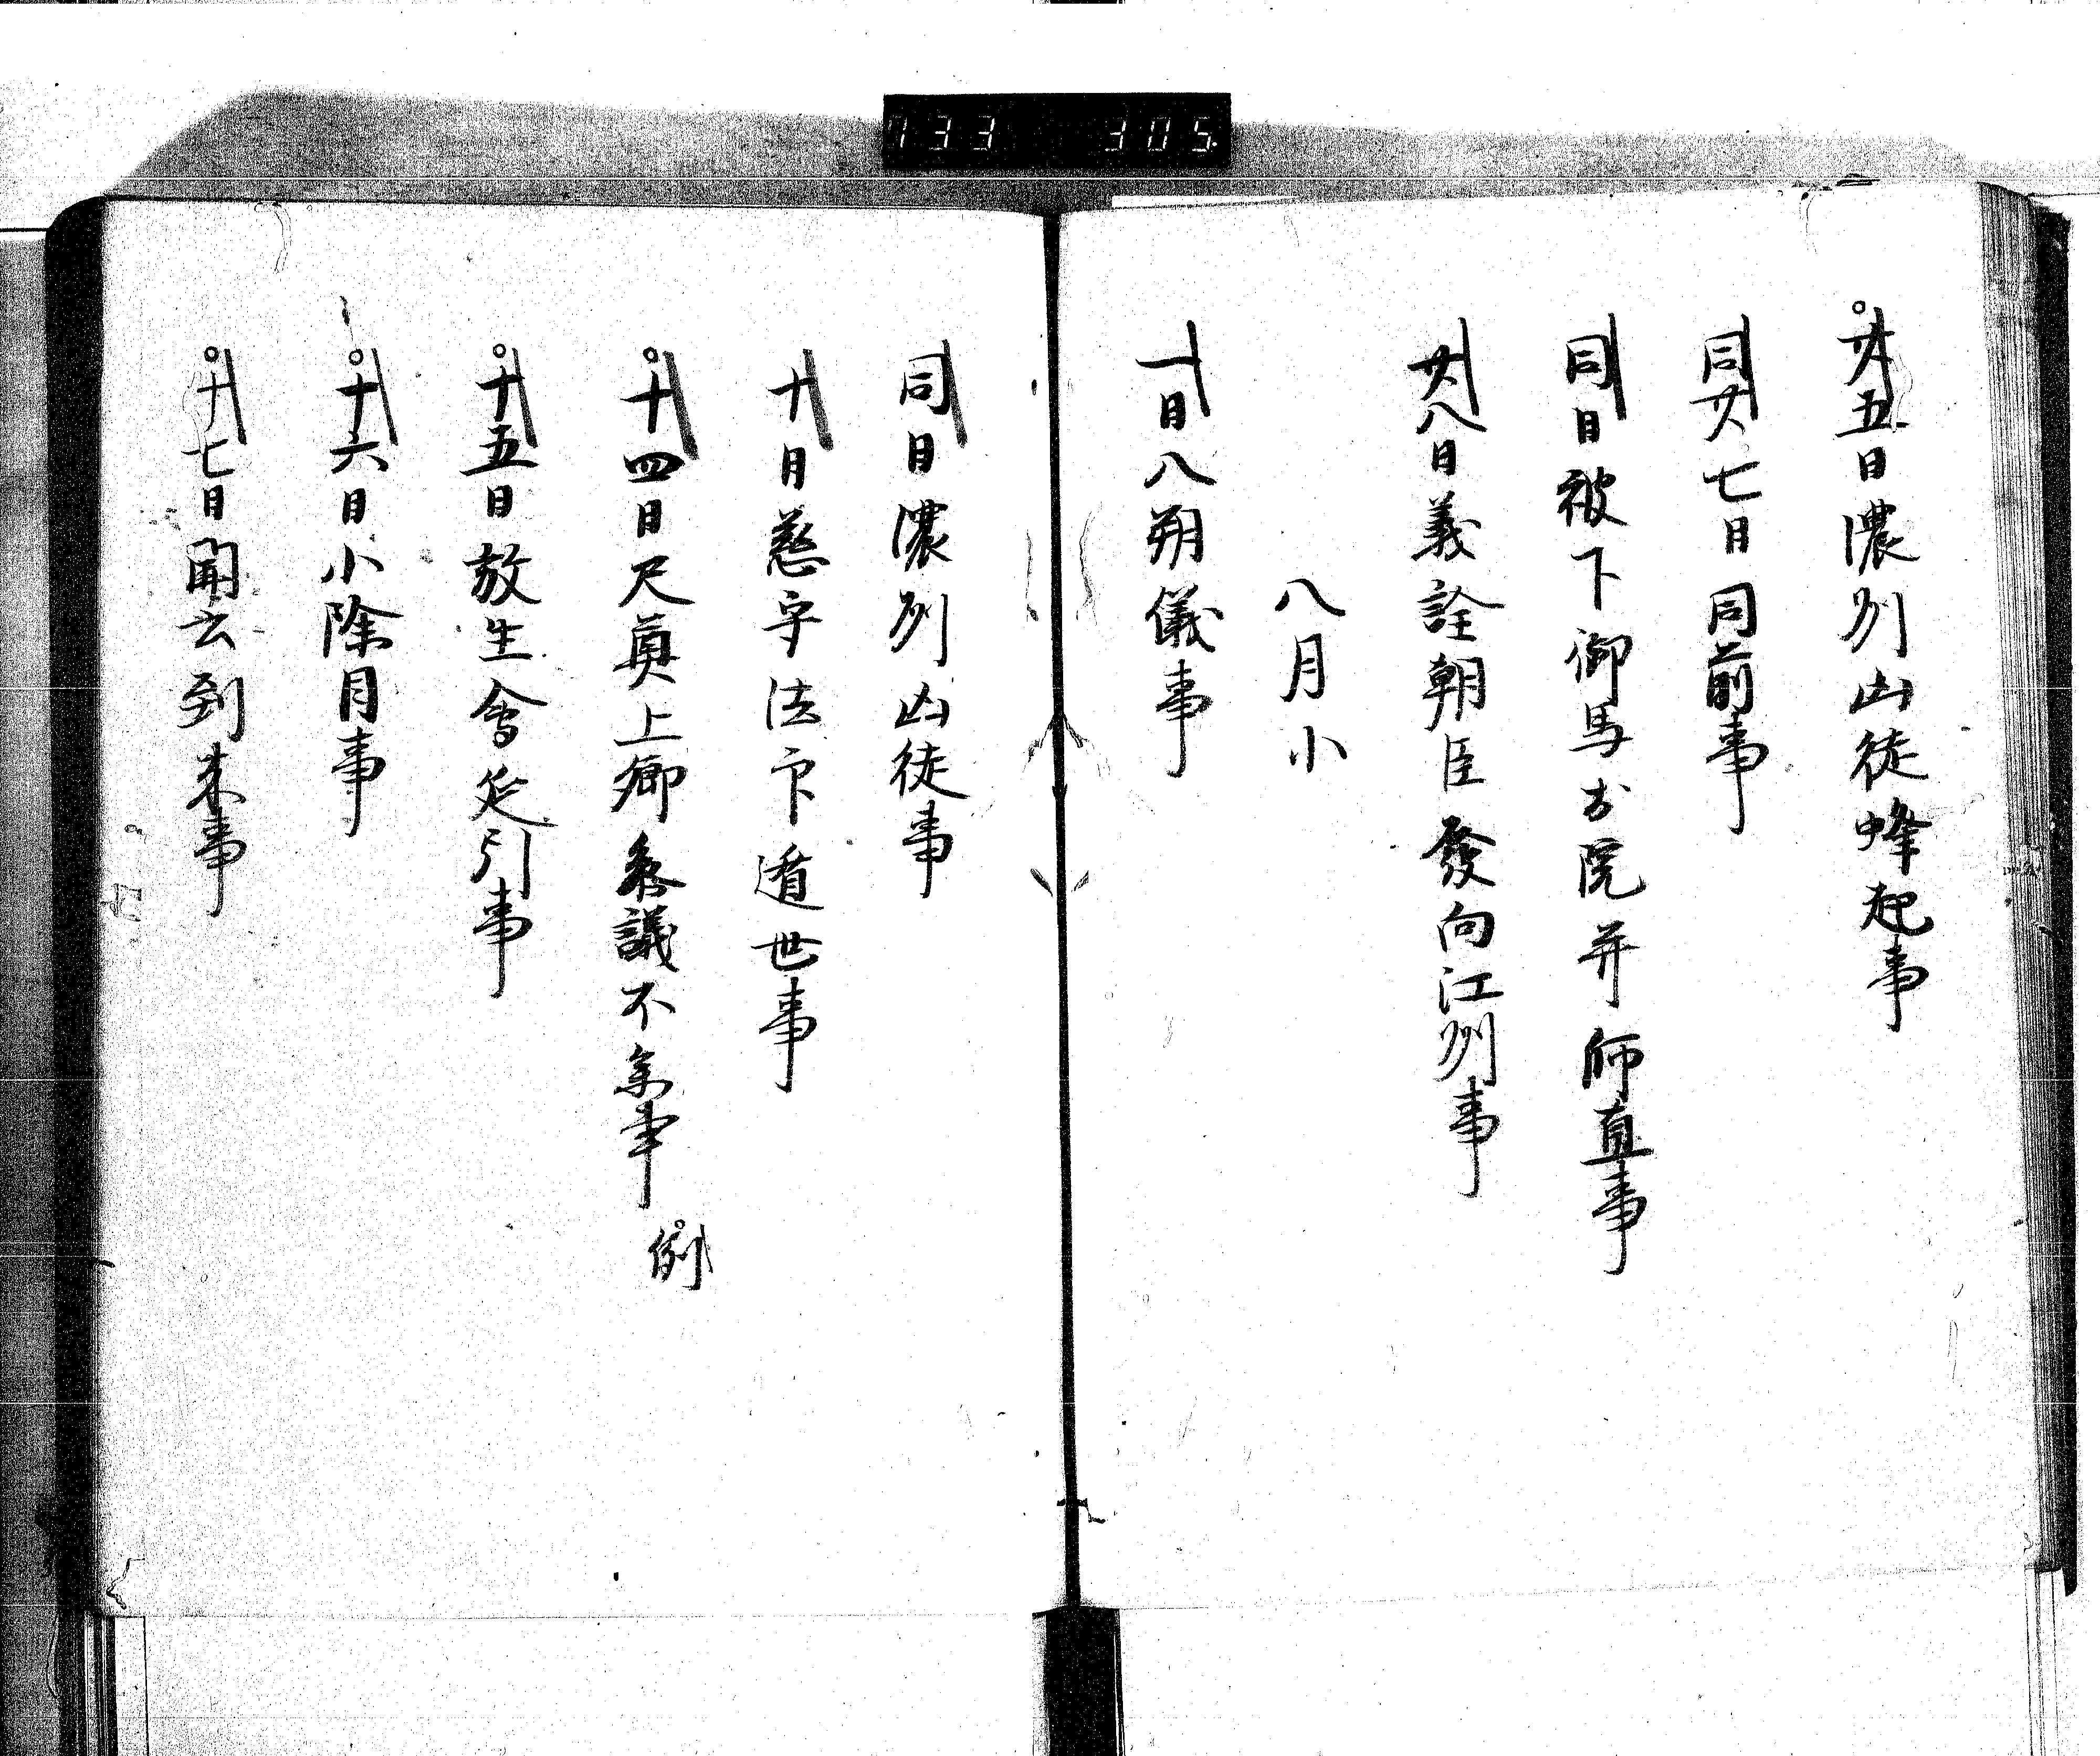 733 305
廿五日濃州凶徒蜂起事
同廿七日同前事
同日被下御馬於院并師直事
廿八日義詮朝臣發向江州事
八月小
一日八朔儀事
同日濃州凶徒事
十日慈字法印遁世事
十四日尺奠上卿参議不参事
例
十五日放生會延引事
十六日小除目事
十七日開云到来事